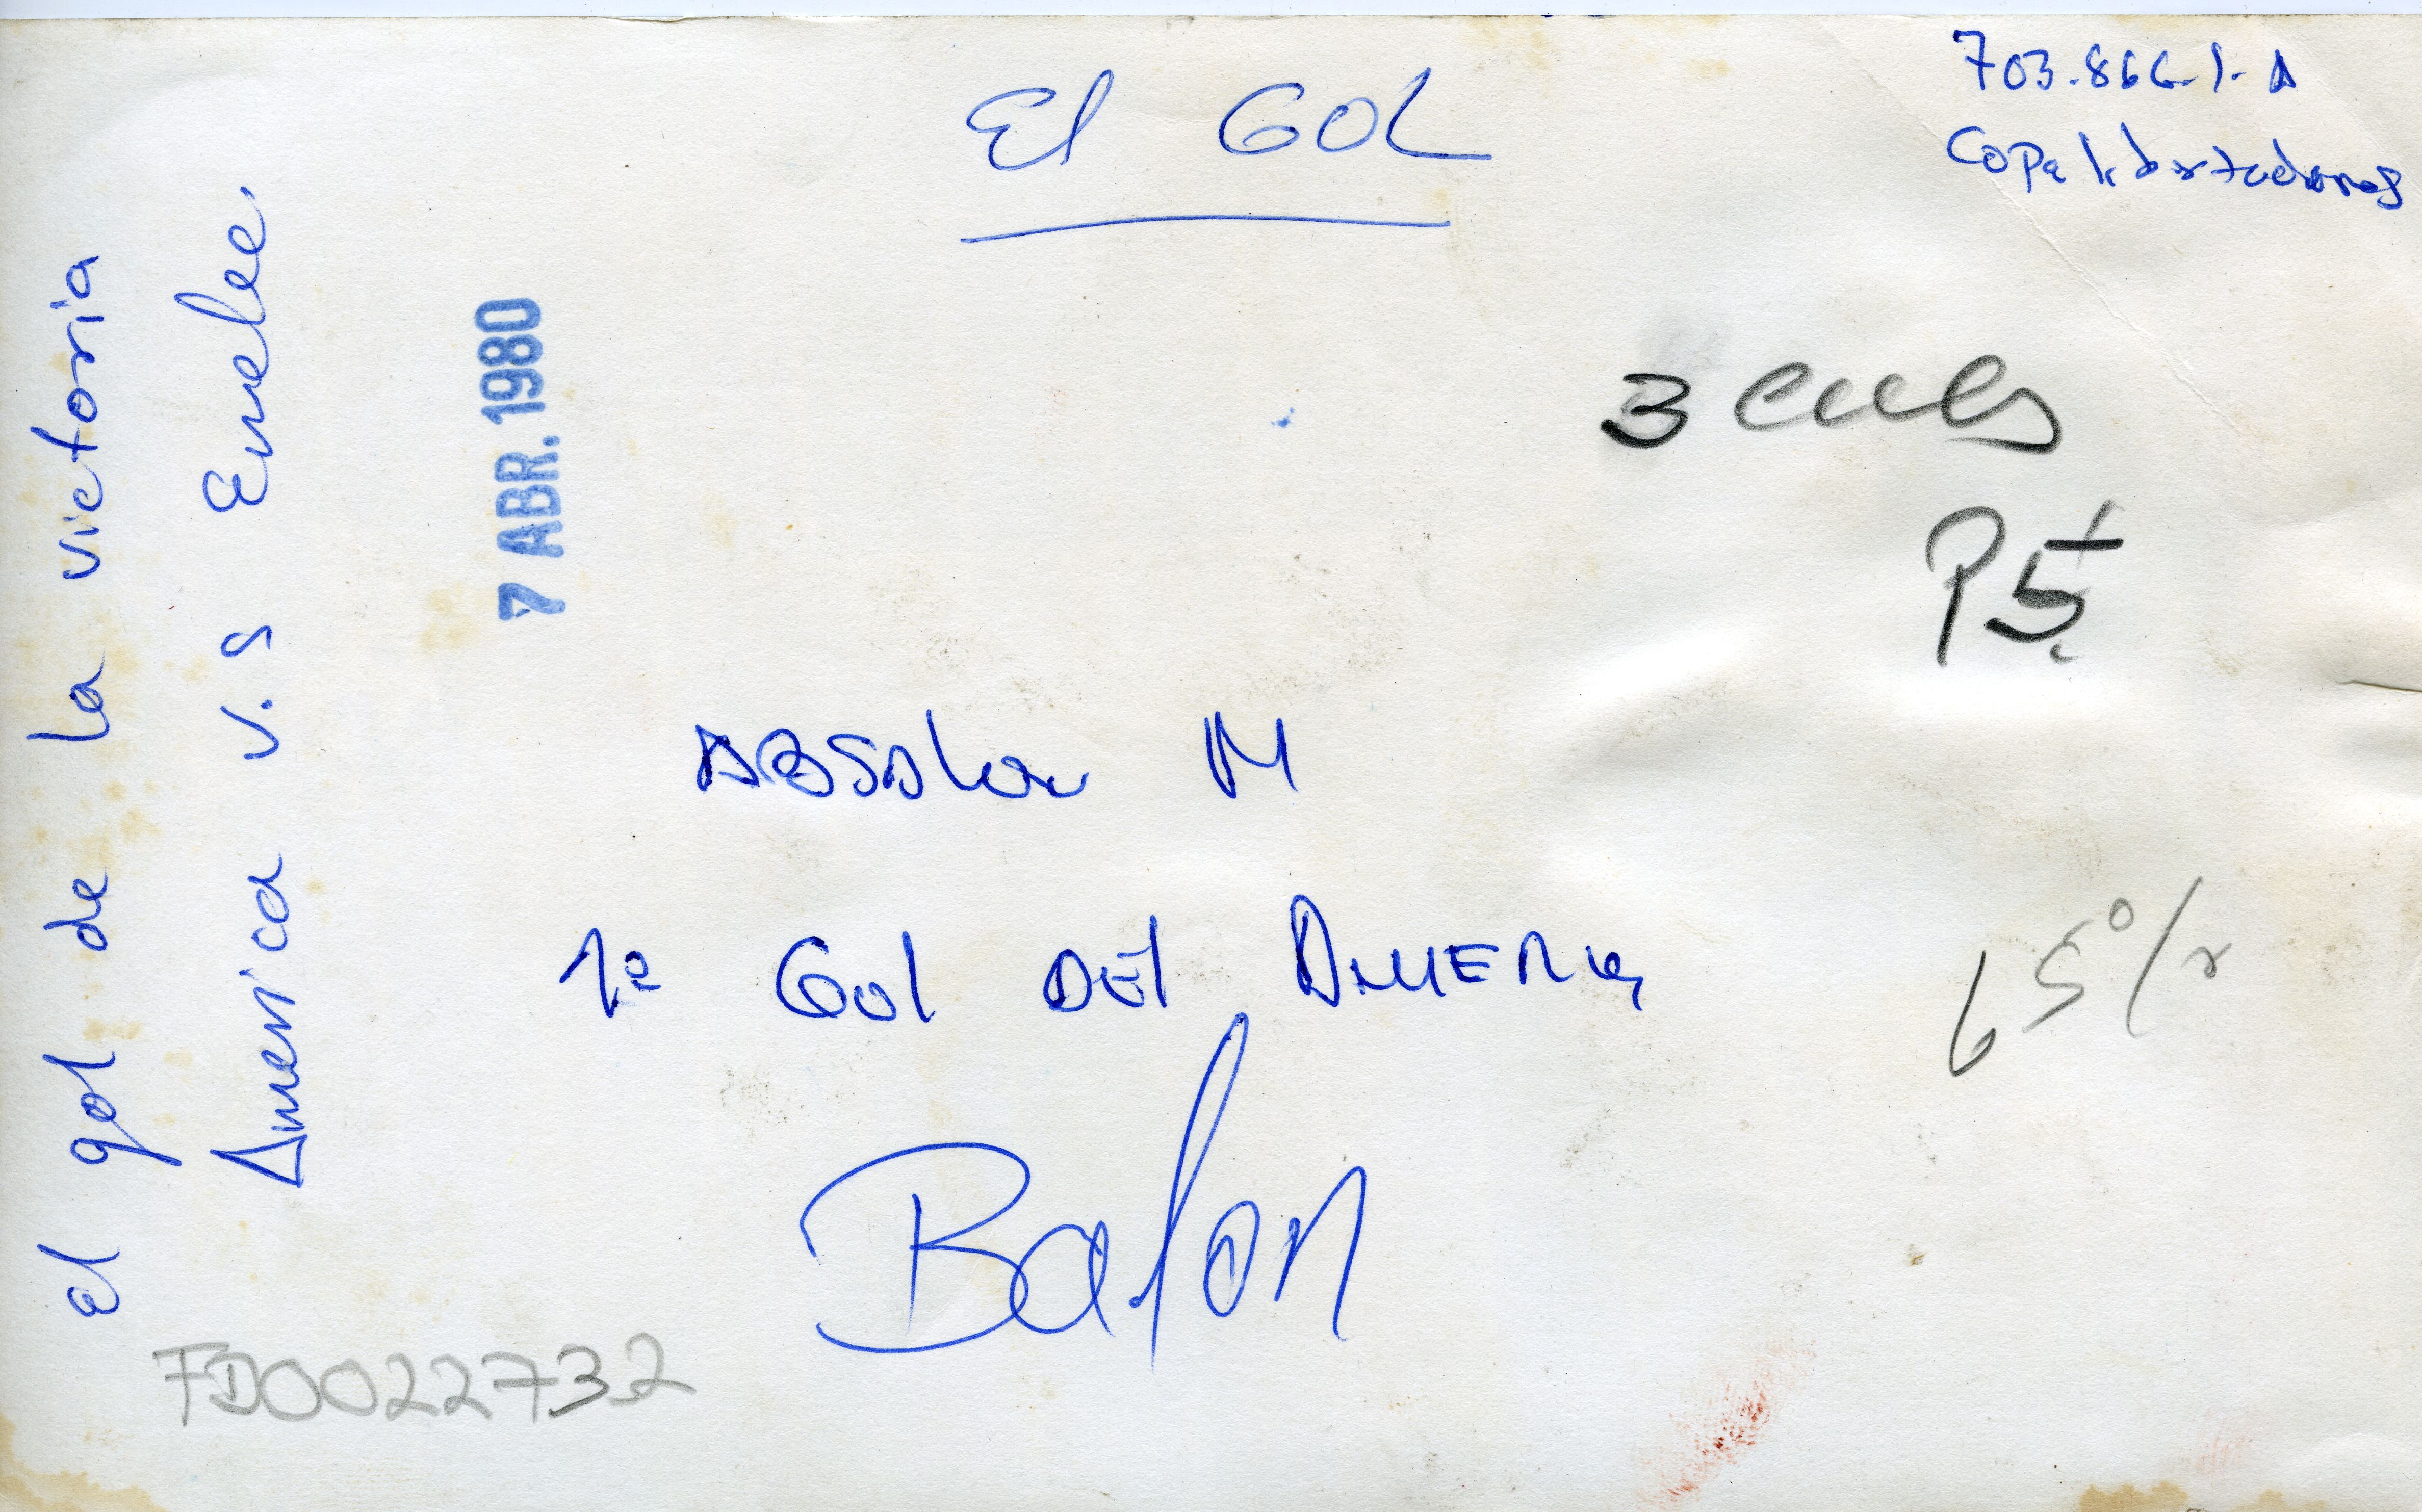 El GOL
703.866.1.A
Copa libertadores
3 culs
P5
7 ABR. 1980
el gol de la victoria
America v.s Emelec
ABSALON M
1º Gol DEL AMERICA
65%
Balon
FD0022732